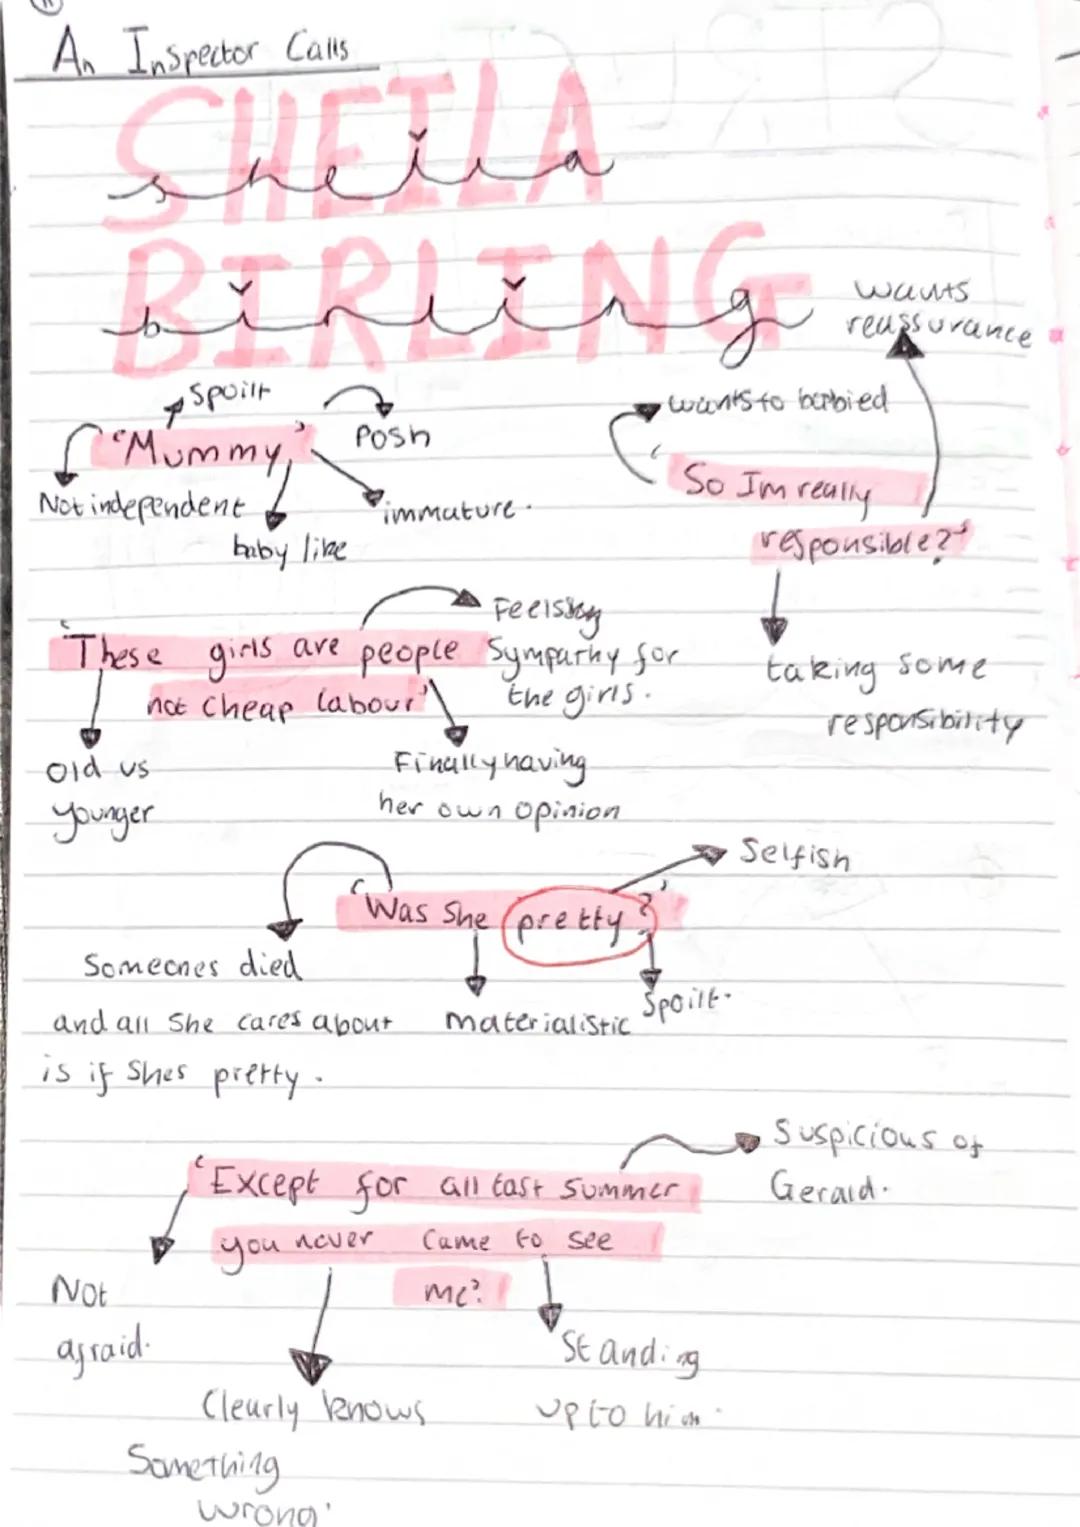 An Inspector Calls
SHEILA
sheila
BIRLING
birling
wants
reassurance
Spoilt
Posh
'Mummy'
Not independent
immature.
baby like
wants to
'So Im really
responsible?'
taking some
responsibility
'These girls are people
not cheap labour'
Feels
Sympathy for
the girls.
Old vs
younger
Finally having
her own opinion
Selfish
'Was She pretty?'
Someones died
and all She cares about
is if Shes pretty.
materialistic
Spoilt.
Suspicious of
Gerald.
'Except for all last summer
you never came to see
me'.
Not
afraid.
Standing
up to him.
Clearly knows
Something
wrong.